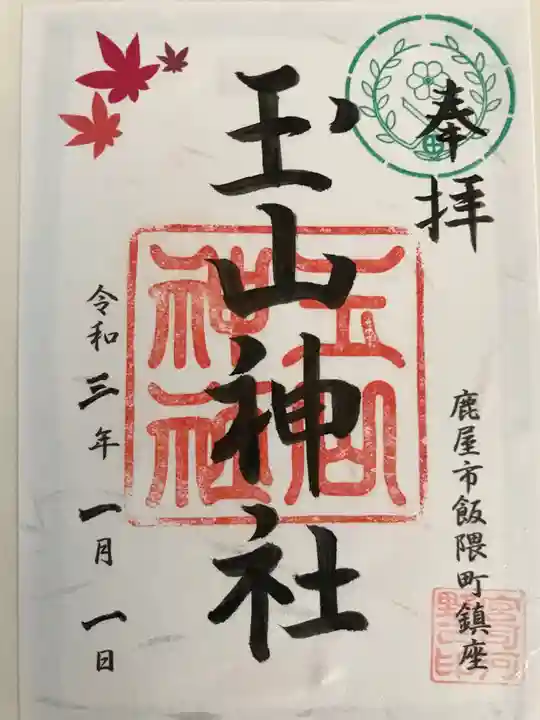 奉拝
玉山神社
鹿屋市飯隈町鎮座
令和三年一月一日
玉山
神社